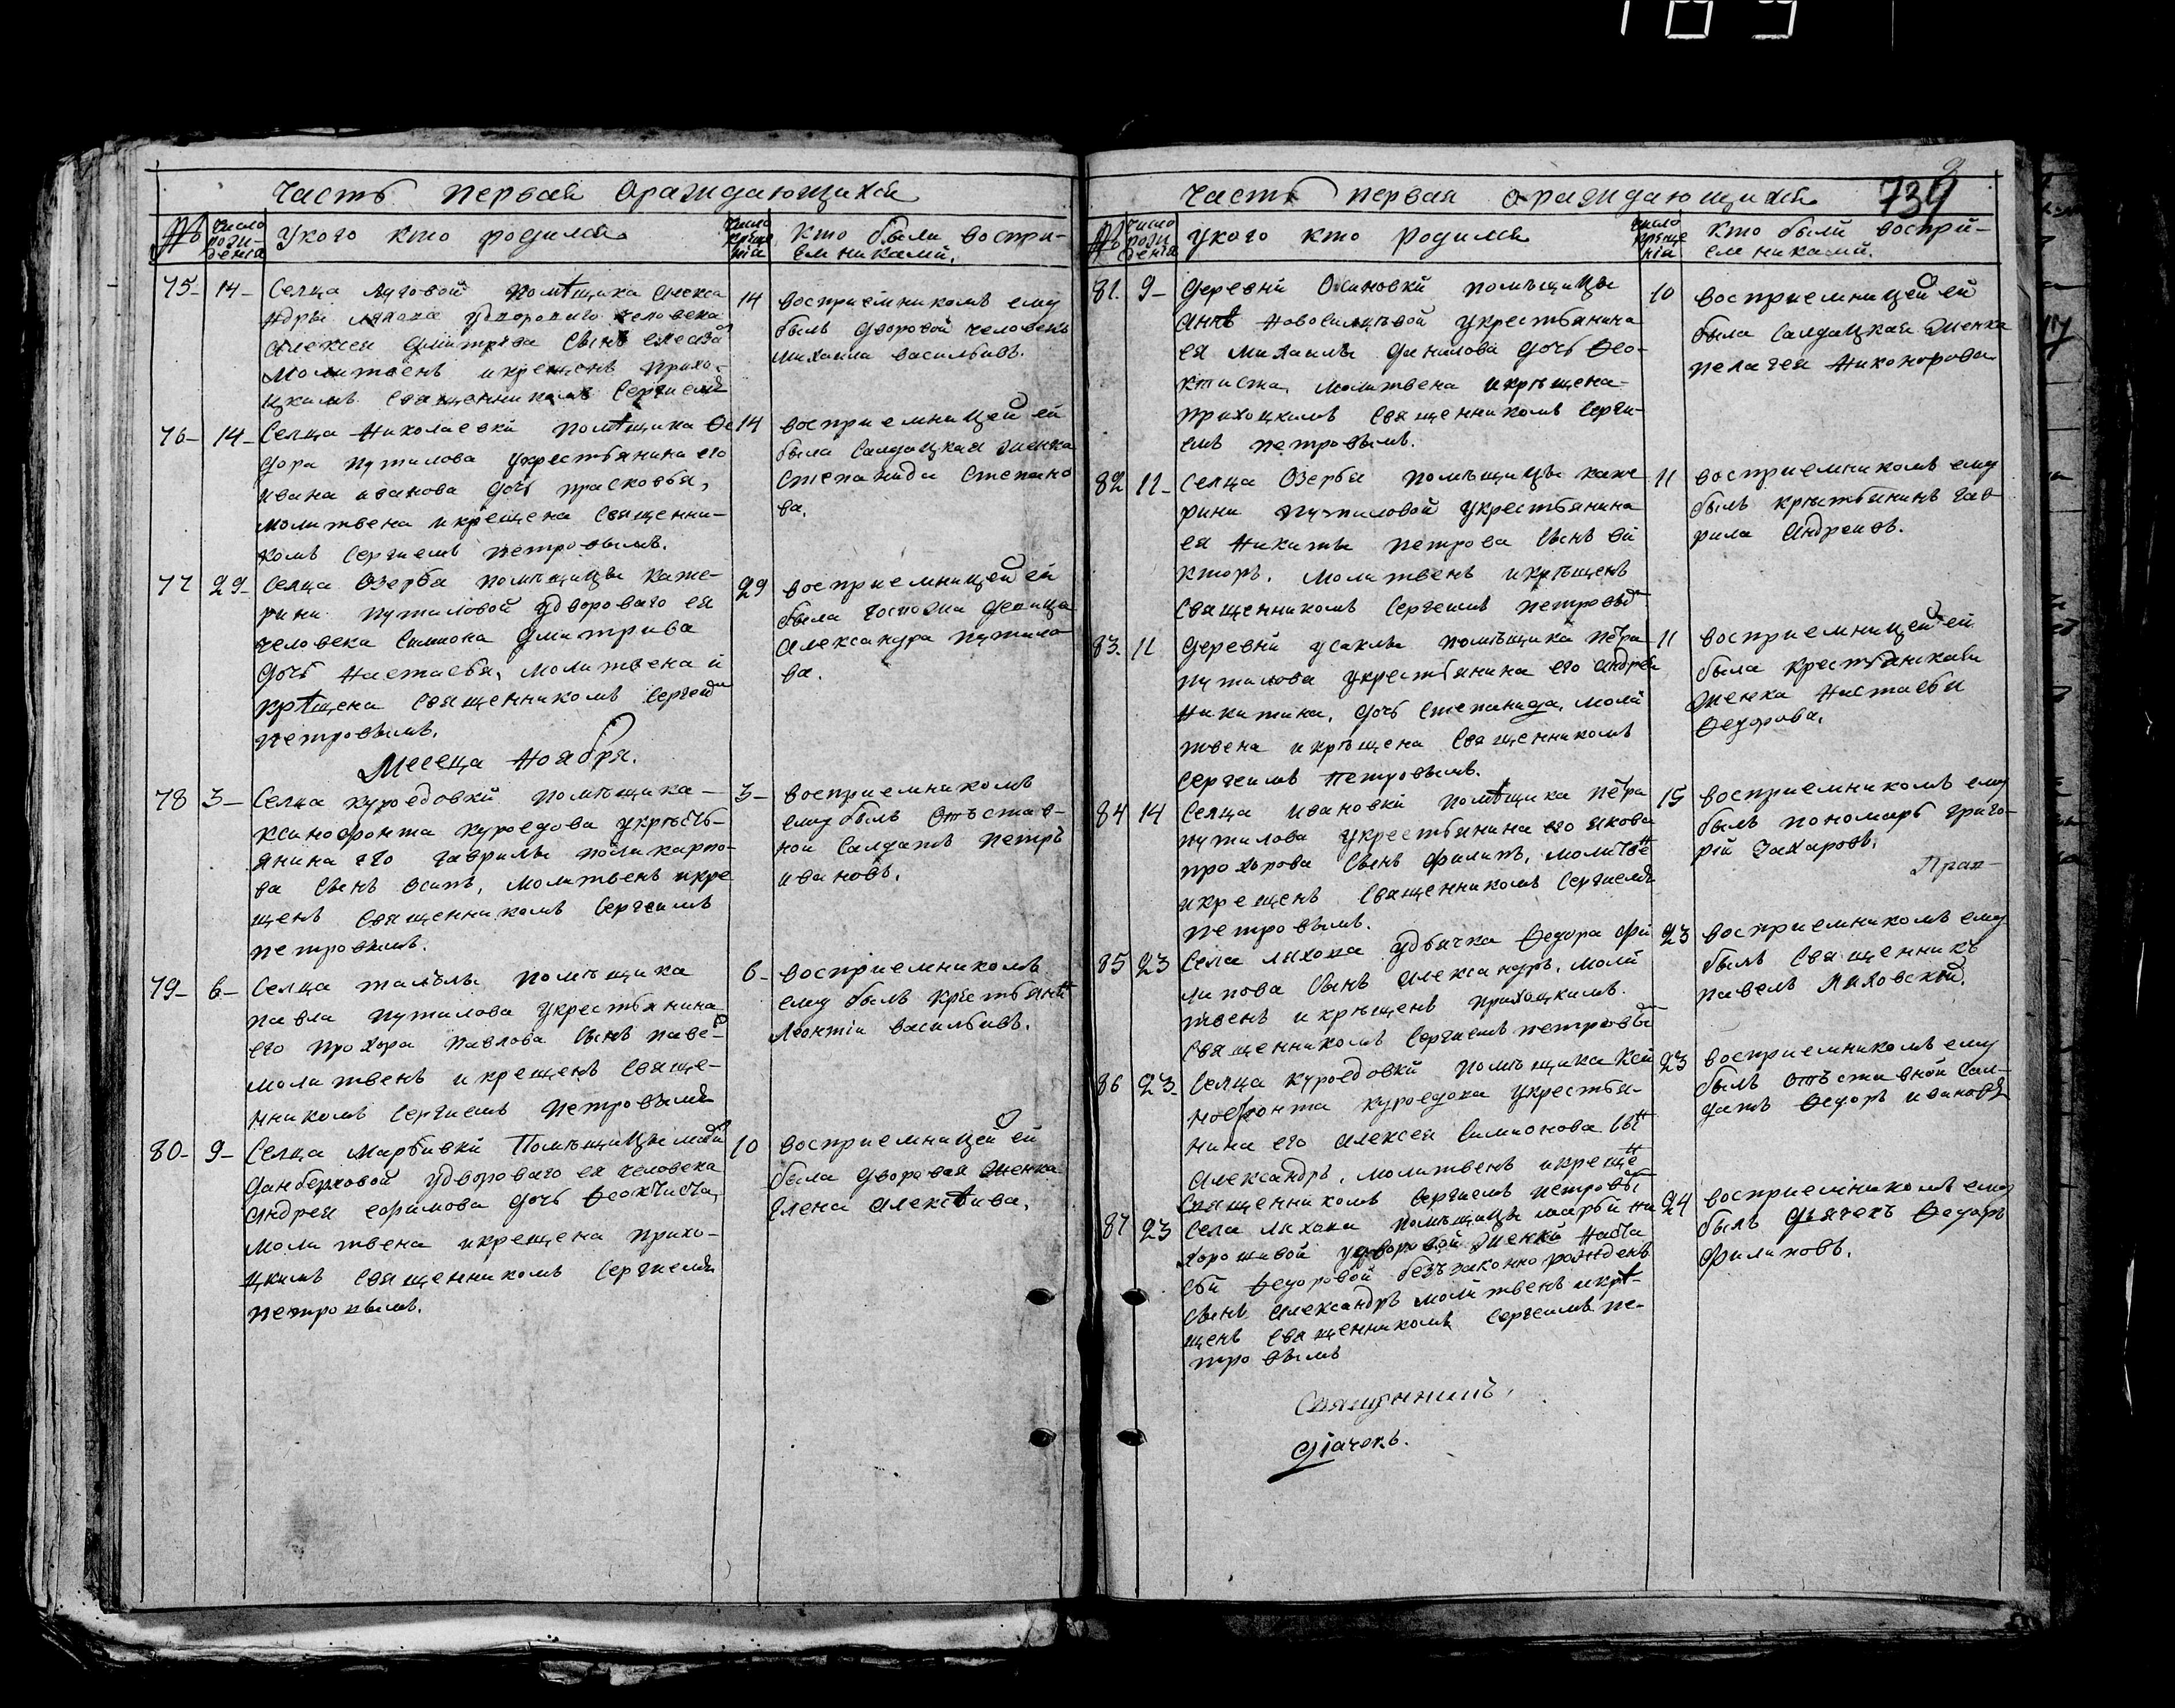 Часть первая ораждающихся
№ число рожденія Укого кто родился число крещенія Кто были воспри-
емниками.
75- 14- Селца Луговой помѣщика Алекса
ндры удвороваго человека
Алексея Дмитрева сынъ
молитвенъ икрещенъ прихо-
цкимъ священникомъ Сергием
14 восприемникомъ ему
былъ дворовой человекъ
михаила васильивъ.
76- 14- Селца Николаевки помѣщика Ѳе
дора путилова укрестьянина его
ивана иванова дочь прасковья,
молитвена икрещена священни-
комъ сергиемъ петровымъ.
14 восприемницей ей
была салдацкая женка
степанида степано
ва.
77 29- Селца Озерба помѣщицы кате-
рины путиловой удвороваго ея
человека симиона дмитрива
дочь настасья, молитвена и
крѣщена священникомъ сергеем
петровымъ.
29 восприемницей ей
была госпожа девица
александра путило
ва.
Месеца Ноября.
78 3- Селца куроедовки помѣщика-
ксинофонта куроедова укрѣсть-
янина его гаврилы поликарпо-
ва сынъ осипъ, молитвенъ икре
щенъ священникомъ сергеимъ
петровымъ.
3- восприемникомъ
ему былъ отъстав-
ной салдатъ петръ
ивановъ.
79- 6- Селца помѣщика
павла путилова укрестьянина
его прохора павлова сынъ паве-
молитвенъ икрещенъ свяще-
нникомъ сергиемъ петровымъ
6- восприемникомъ
ему былъ крестьянин
леонтіи васильивъ.
80- 9- Селца Марьивки помѣщицы
данберховой удвороваго ея человека
андрея ефимова дочь Ѳеоктиста,
молитвена икрещена прихо-
цкимъ священникомъ сергиемъ
петровымъ.
10 восприемницей ей
была дворовая женка
елена алексѣива.
739
Часть первая ораждающихся
№ число рожденія Укого кто родился число крѣщенія Кто были воспри-
емниками.
81. 9- Деревни Осиновки помѣщицы
Аннѣ Новосильцѣвой укрестьянина
ея михаилы данилова дочь Ѳео-
ктиста, молитвена икрѣщена-
приходцкимъ священникомъ серги-
емъ петровымъ.
10 восприемницей ей
была салдацкая женка
пелагея никонорова
82 11- Селца Озерба помѣщицы кате
рины путиловой укрестьянина
ея никиты петрова сынъ ви
кторъ. молитвенъ икрѣщенъ
священникомъ сергеимъ петровы
11 восприемникомъ ему
былъ крѣстьянинъ гав-
рила андреивъ.
83. 11 Деревни усаклы помѣщика петра
путилова укрестьянина его андрея
никитина, дочь степанида, моли
твена икрѣщена священникомъ
сергеимъ петровымъ.
11 восприемницей ей
была крестьянская
женка настасья
Ѳедорова.
84 14 Селца ивановки помѣщика петра
путилова укрестьянина его якова
прохорова сынъ филипъ, молитве
икрещенъ священникомъ сергиемъ
петровымъ.
15 восприемникомъ ему
былъ пономарь григо-
рій Захаровъ.
85 23 Села ляхова удьячка Ѳедора фи
липова сынъ александръ. моли
твенъ икрѣщенъ прихоцкимъ.
священникомъ сергиемъ петровы
23 восприемникомъ ему
былъ священникъ
павелъ Ляховский.
86 23- Селца куроедовки помѣщика кси
нофонта куроедова укрестья-
нина его алексея симионова сы
александръ, молитвенъ икреще
священникомъ сергиемъ петровы
23 восприемникомъ ему
былъ отъставной сал-
датъ Ѳедоръ ивановъ
87 23 Села ляхова помѣщицы марьи
хорошивой удворовой женки наста
сьи Ѳедоровой безъзаконно рожденъ
сынъ александръ молитвенъ икрѣ-
щенъ священникомъ сергеимъ пе-
тровымъ
24 восприемникомъ ему
былъ дьячекъ Ѳедоръ
филиповъ.
Священникъ
діачекъ.